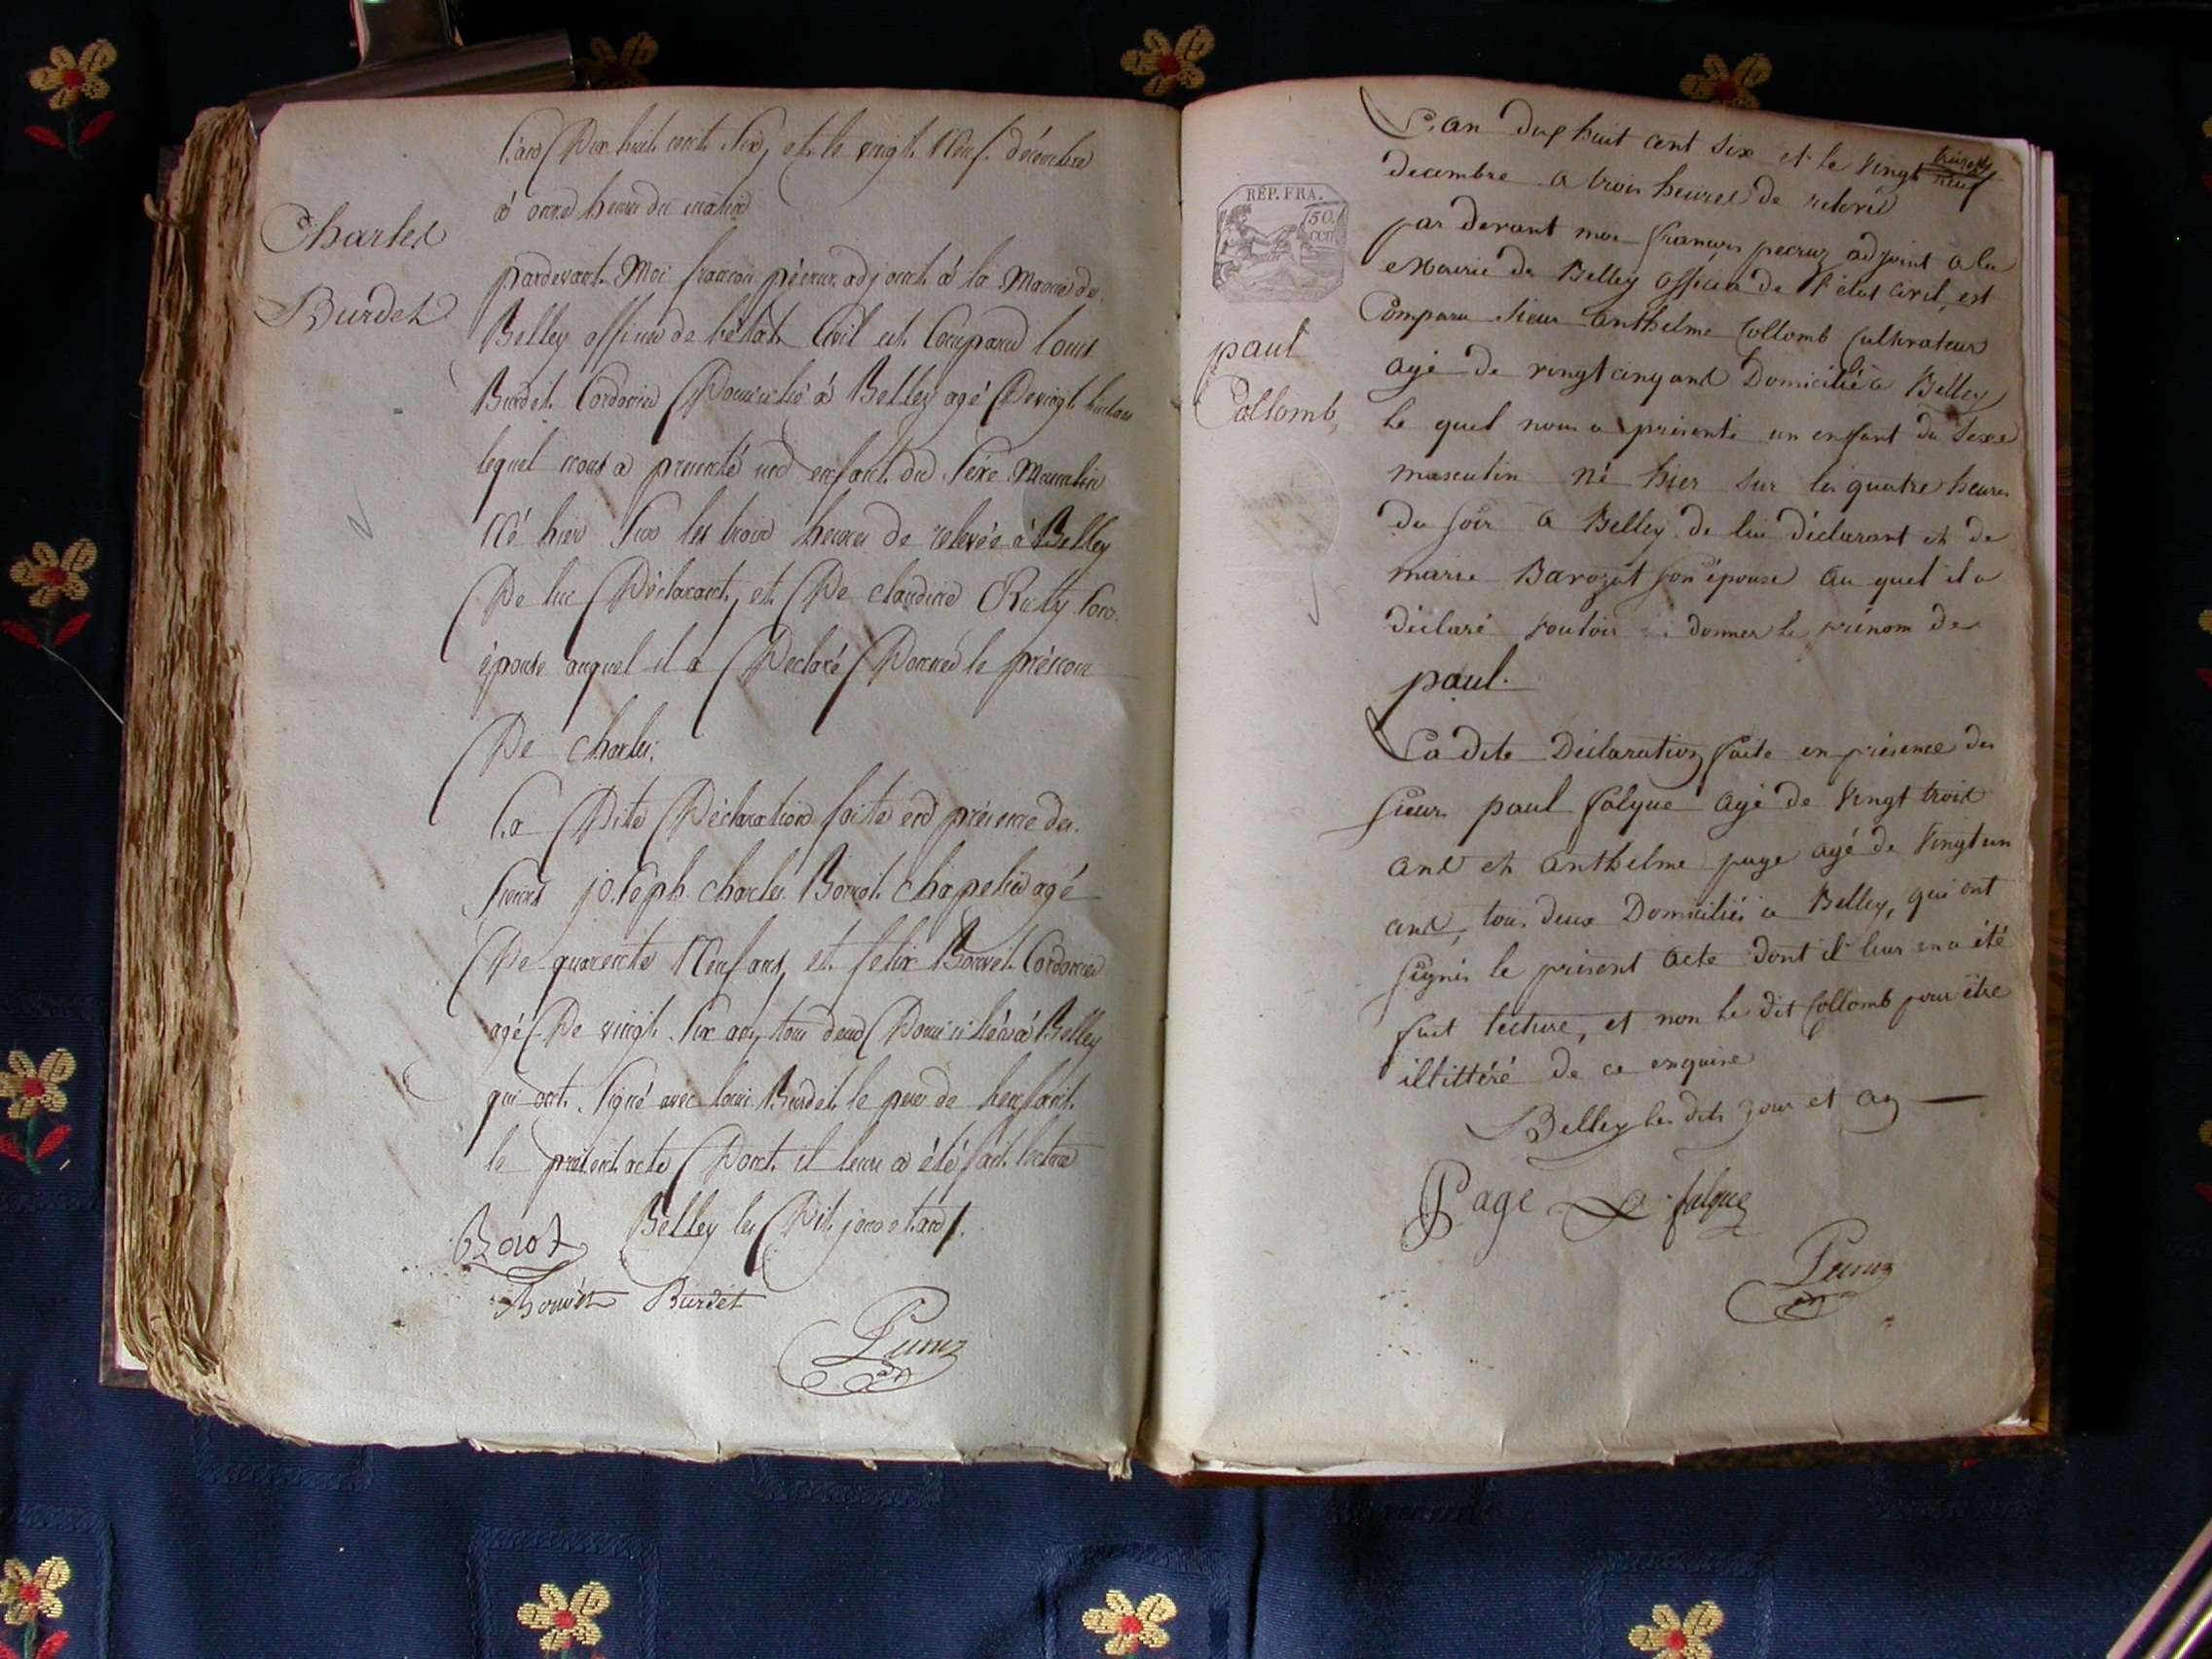 Charles
Burdet
L'an Dix huit cent Six, et le vingt Neuf décembre
à onze heures du matin
pardevant Moi françois pécruz adjoint à la Mairie de
Belley officier de l'état Civil est Comparu louis
Burdet Cordonier Domicilié à Belley agé De vingt huit ans
lequel nous a presenté un enfant du Sexe Masculin
Né hier Sur les trois heures de relevée à Belley
De lui Déclarant, et De claudine Son
épouse auquel il a Declaré Donner le prénom
De charles.
La Dite Déclaration faite en présence des
Sieurs joseph charles chapelier agé
De quarente Neuf ans, et felix Bouvet Cordonier
agé De vingt Six ans, tous deux Domiciliés à Belley
qui ont Signé avec louis Burdet le pere de l'enfant
le présent acte Dont il leur a été fait lecture
Belley les Dit jour et an
Bouvet Burdet
Pecruz
adt
RÉP. FRA.
50
cen
paul
Collomb
L'an dix huit cent six et le vingt neuf
decembre a trois heures de relevé
par devant moi françois pecruz adjoint à la
Mairie de Belley officier de l'état civil, est
Comparu sieur anthelme Collomb Cultivateur
agé de vingt cinq ans Domicilié à Belley
le quel nous a présenté un enfant du sexe
masculin né hier sur les quatre heures
du soir a Belley de lui déclarant et de
marie Barozat son épouse au quel il a
déclaré vouloir donner le prénom de
paul.
La dite Déclaration faite en présence des
sieurs paul falque agé de vingt trois
ans et anthelme page agé de vingt un
ans, tous deux Domiciliés a Belley, qui ont
signés le présent acte dont il leur en a été
fait lecture, et non le dit Collomb pour être
illittéré de ce enquise
Belley les dits jour et an
Page falque
Pecruz
adt